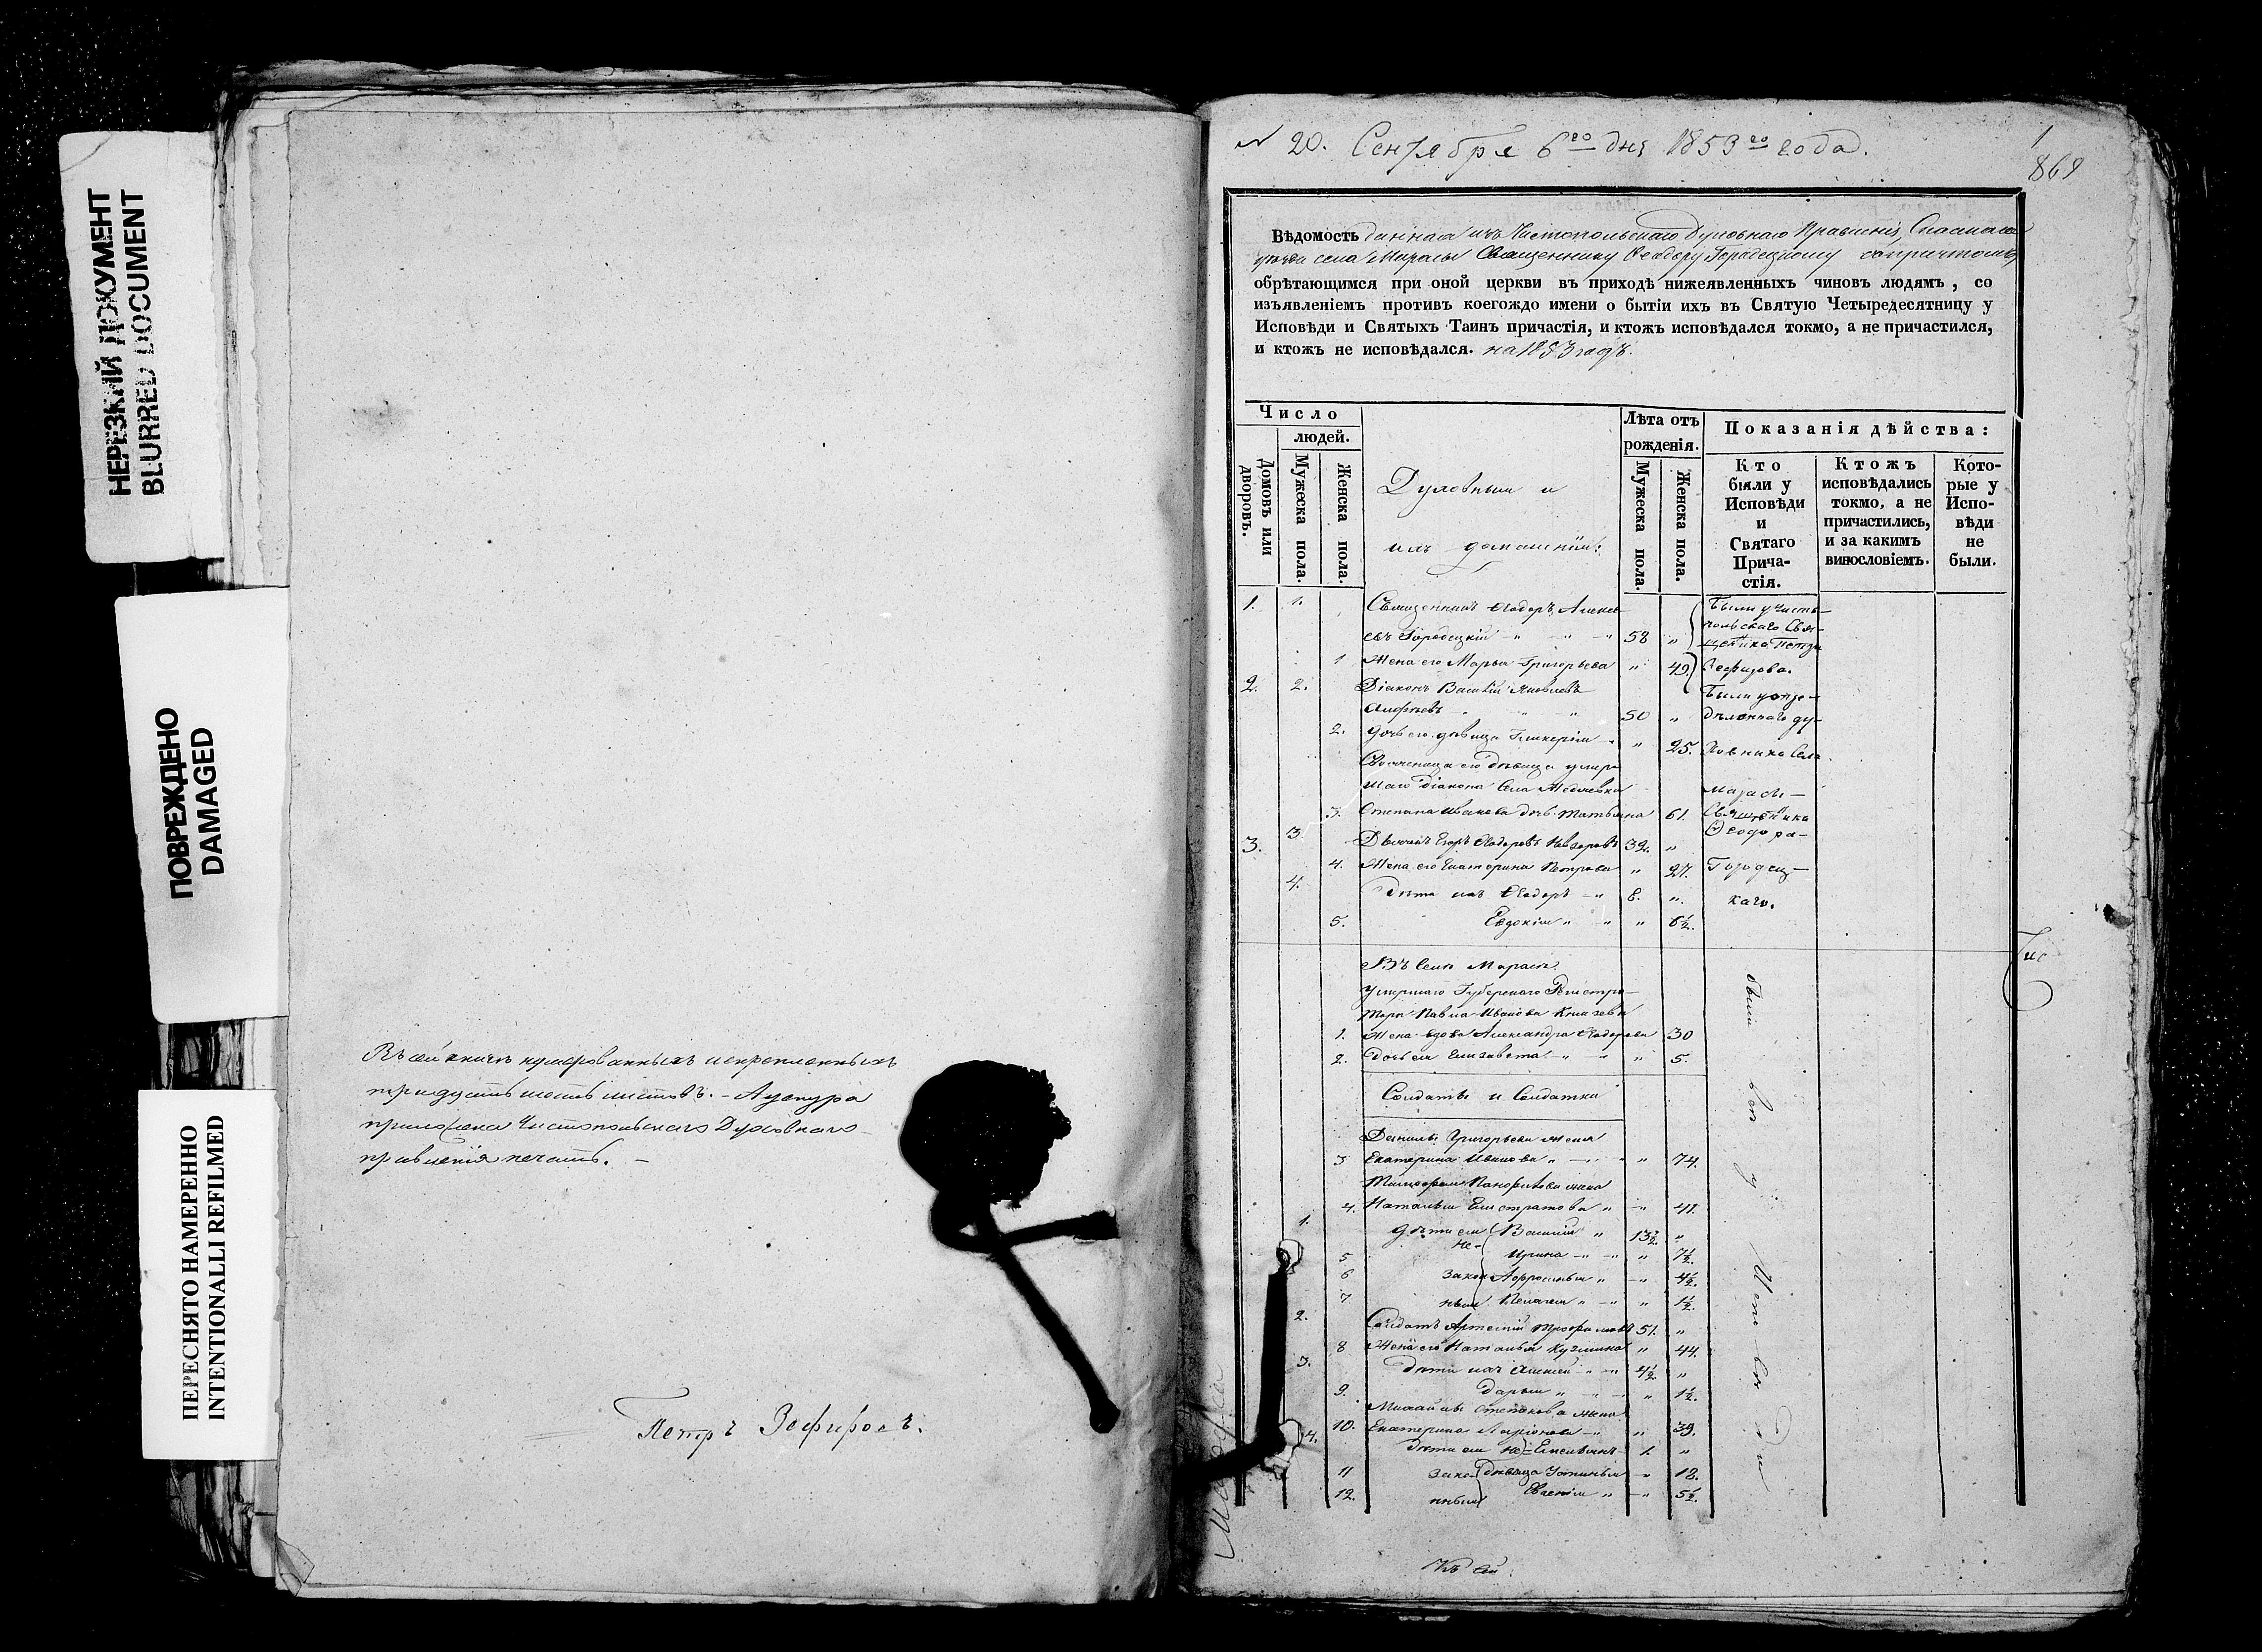 НЕРЕЗКИЙ ДОКУМЕНТ
BLURRED DOCUMENT
ПОВРЕЖДЕНО
DAMAGED
ПЕРЕСНЯТО НАМЕРЕННО
INTENTIONALLI REFILMED
Въ сей книгѣ нумерованныхъ и скрепленныхъ
тридцать шесть листовъ. – А у снура
приложена Чистопольскаго Духовнаго
правленія печать. –
Петръ Зефировъ.
№ 20. Сентября 6го дня 1853го года.
1
869
Вѣдомость данная изъ Чистопольскаго Духовнаго Правленія, Спаскаго
уѣзда села Марасы Священнику Ѳеодору Городецкому съ причтомъ,
обрѣтающимся при оной церкви въ приходѣ нижеявленныхъ чиновъ людямъ, со
изъявленіемъ противъ коегождо имени о бытіи ихъ въ Святую Четыредесятницу у
Исповѣди и Святыхъ Таинъ причастія, и ктожъ исповѣдался токмо, а не причастился,
и ктожъ не исповѣдался. на 1853 годъ.
Число
людей.
Домовъ или дворовъ.
Мужеска пола.
Женска пола.
Духовныи и
ихъ домашніи:
Лѣта отъ
рожденія.
Мужеска пола.
Женска пола.
Показанія дѣйства:
Кто
были у
Исповѣди
и
Святаго
Прича-
стія.
Ктожъ
исповѣдались
токмо, а не
причастились,
и за какимъ
винословіемъ.
Кото-
рые у
Испо-
вѣди
не
были.
1. 1. Священникъ Ѳеодоръ Алексѣ-
евъ Городецкій " 58 "
1 Жена его Марья Григорьева " 49
Были у Чисто-
польскаго Свя-
щенника Петра
Зефирова.
2. 2. Діаконъ Василій Яковлевъ
50 "
2. Дочь его дѣвица Гликерія " 25.
Свояченица его дѣвица умер-
шаго діакона села
3. Степана Иванова дочь Татьяна 61.
3. 3. Дьячекъ Егоръ Ѳедоровъ 32. "
4. Жена его Екатерина Петрова " 27.
4. Дѣти ихъ Ѳедоръ " 8. "
5. Евдокія " " 6½.
Были у опре-
дѣленнаго ду-
ховника села
Марасы
Священника
Ѳеодора
Городец-
каго.
Въ селѣ Марасѣ
Умершаго Губерскаго Регистра-
тора Павла Иванова
1. Жена вдова Александра Ѳедорова 30
2. Дочь ея Елизавета " " 5.
Солдаты и Солдатки
Данилы Григорьева жена
3 Екатерина Иванова " " 74.
жена
4. Наталья Елистратова " 41.
1. Дѣти ея Василій " 13½ "
5 не- Ирина " " 7½.
6 закон- " 4½.
7 ныя Пелагея " " 1½.
2. Солдатъ Артемій 51. "
8 Жена его Наталья Кузмина " 44.
3. Дѣти ихъ Алексѣй " 4½ "
9. Дарья " " 1½.
Михайлы Степанова жена
10. Екатерина " " 39.
4. Дѣти ея не- 1. "
11 зако- дѣвица " 18.
12. нныя " " 5½.
были всѣ у Исповѣди
Къ сей